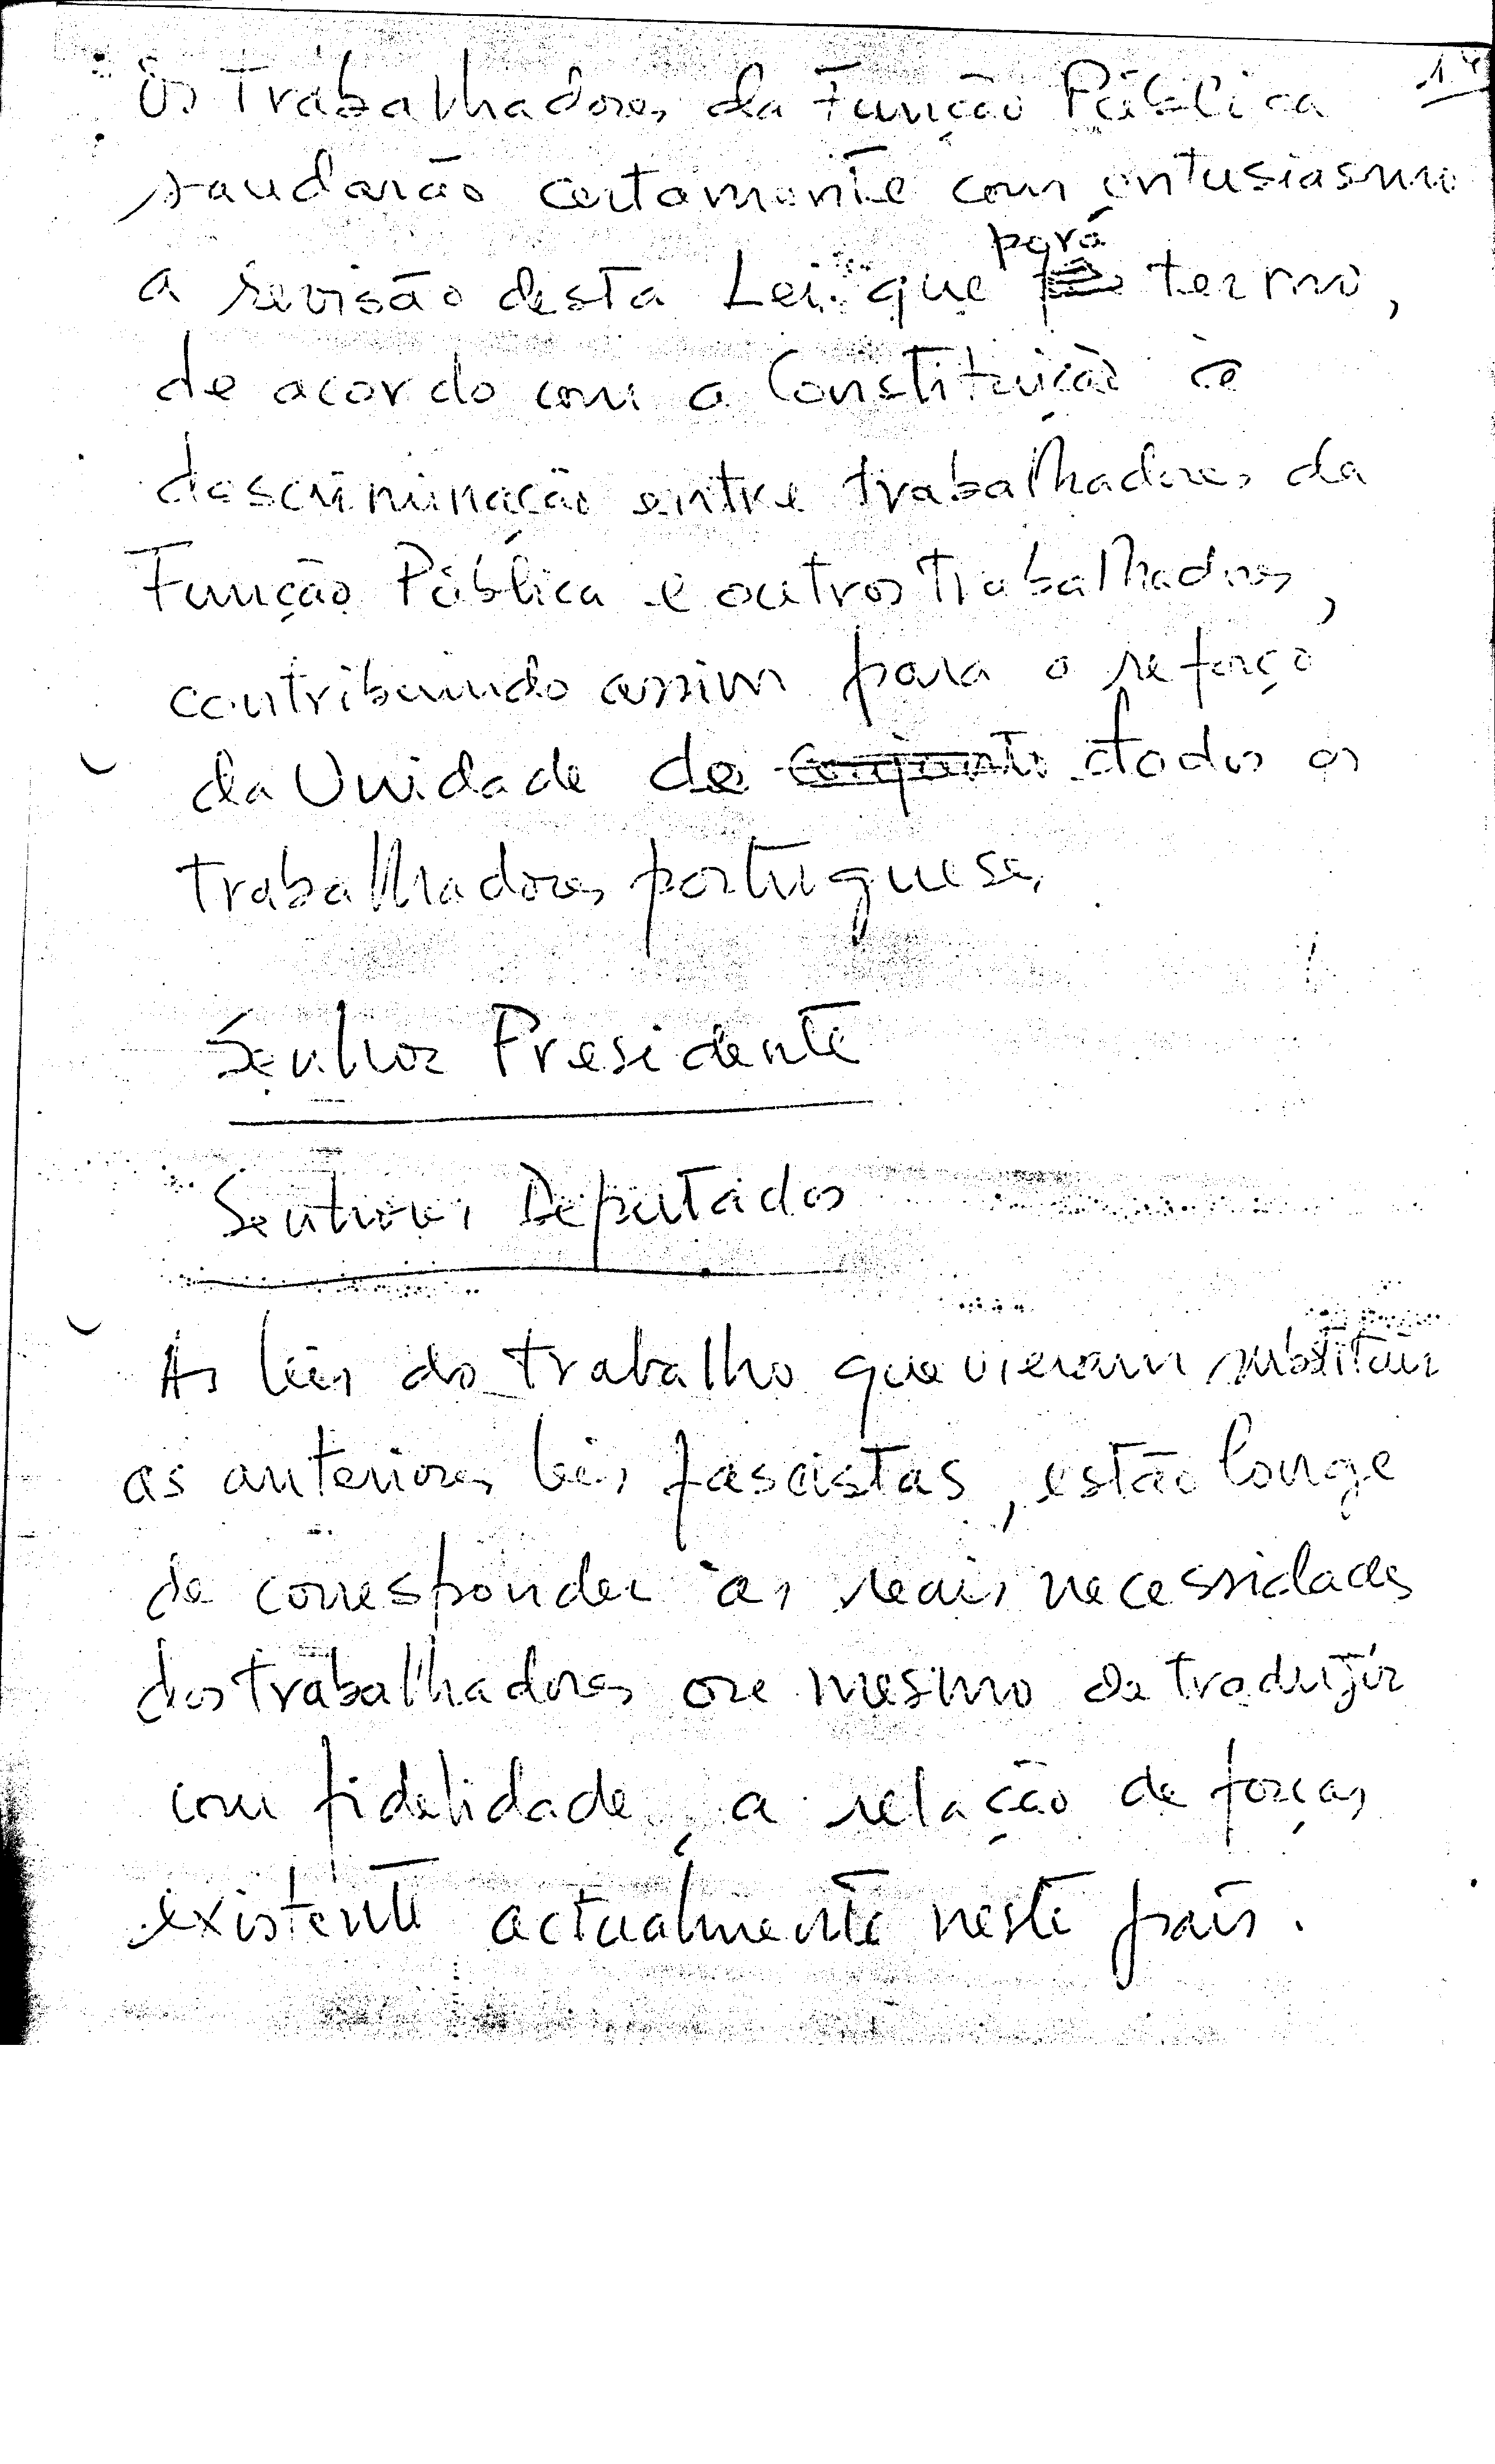 Os Trabalhadores da Função Pública
saudarão certamente com entusiasmo
a revisão desta Lei que porá termo,
de acordo com a Constituição à
descriminação entre trabalhadores da
Função Pública e outros Trabalhadores,
contribuindo assim para o reforço
da Unidade de conjunto de todos os
Trabalhadores portugueses
Senhor Presidente
Senhores Deputados
As leis do trabalho que vieram substituir
as anteriores leis fascistas, estão longe
de corresponder às reais necessidades
dos trabalhadores ou mesmo de traduzir
com fidelidade, a relação de forças
existente actualmente neste país.